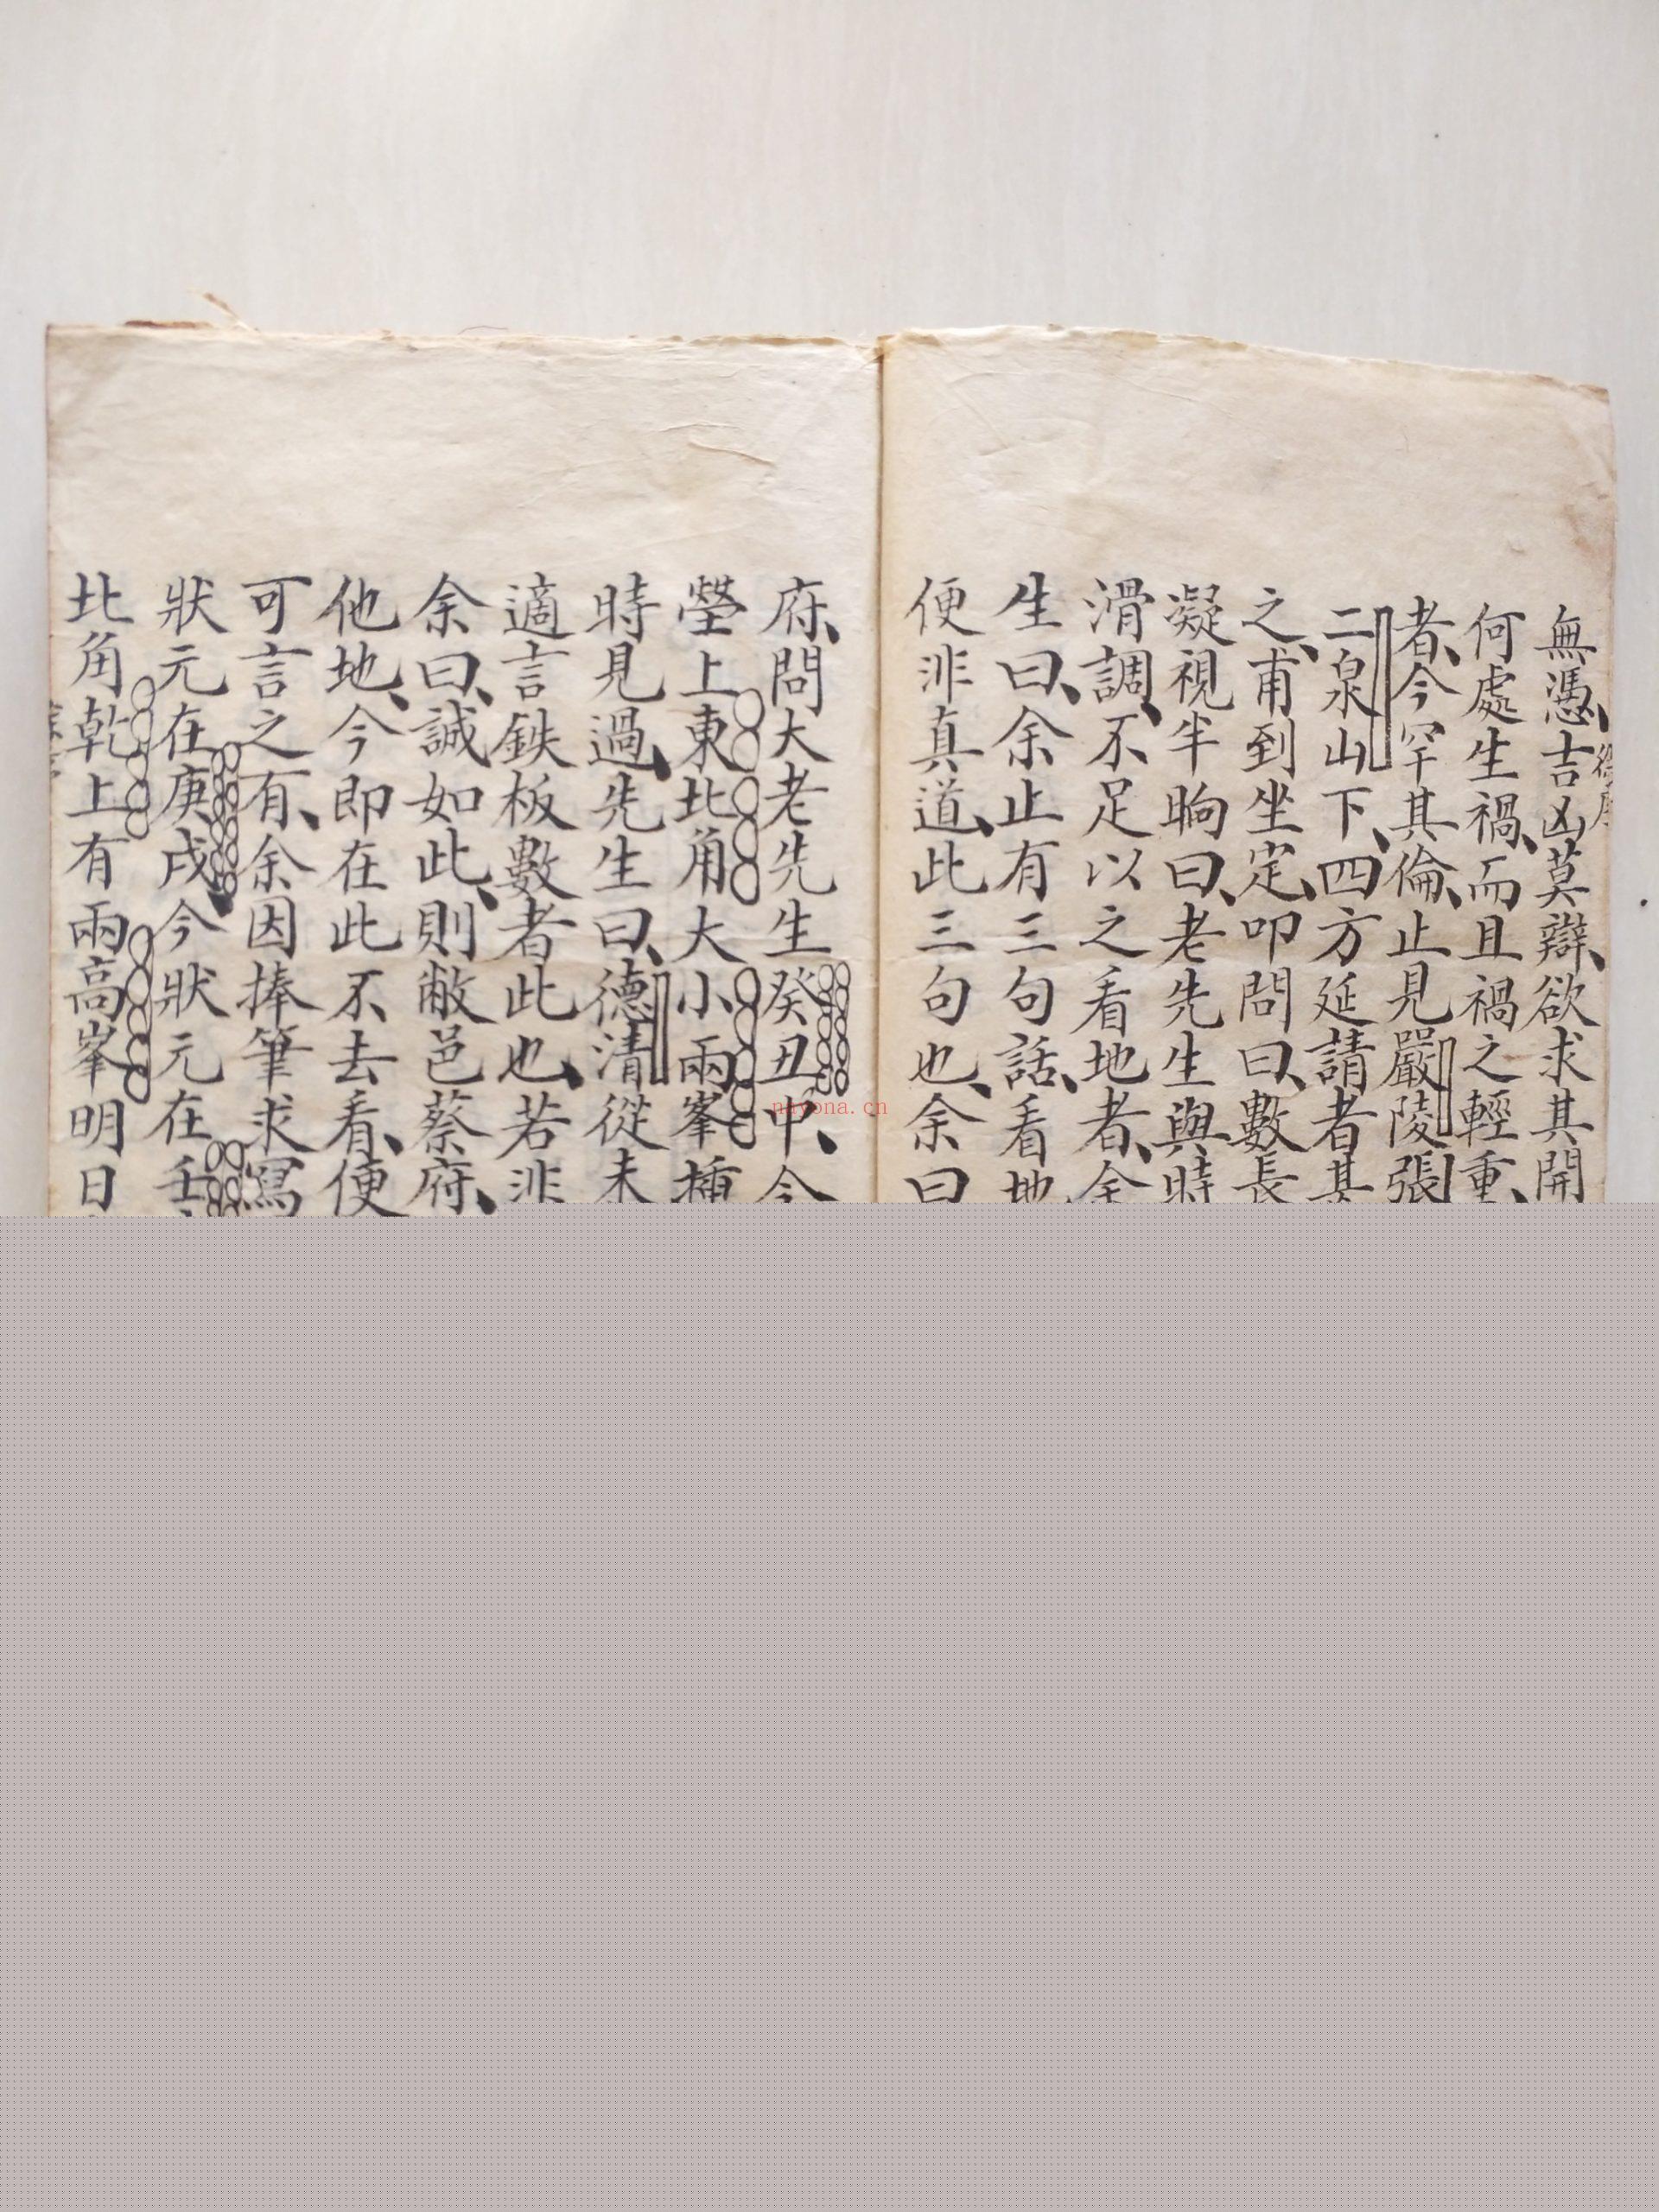 無憑、吉凶莫辯、欲求其開
何處生禍、而且禍之輕重、
者、今罕其倫、止見嚴陵張
二泉山下、四方延請者甚
之、甫到坐定、叩問曰、數長
凝視半晌曰、老先生與時
滑調、不足以之看地者、余
生曰、余止有三句話、看地
便非真道、此三句也、余曰
府、問大老先生癸丑中、今
塋上東北角大小兩峯插
時見過、先生曰、德清從未
適言鉄板數者此也、若非
余曰、誠如此、則敝邑蔡府、
他地、今即在此不去看、便
可言之有、余因捧筆求寫
狀元在庚戌、今狀元在壬
北角乾上有兩高峯明日
nayona.cn